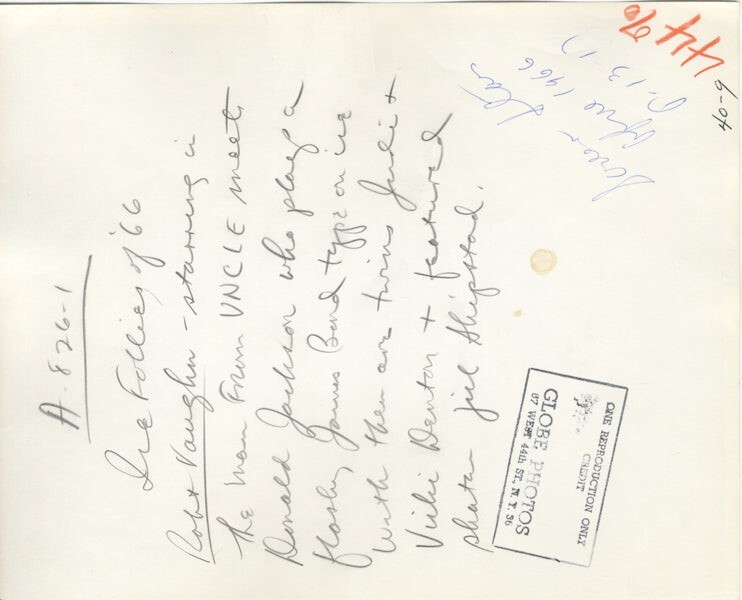 A-826-1
Ice Follies of '66
Robt Vaughn - starring in
the Man From UNCLE meets
Donald Jackson who plays a
flashy James Bond type on ice
With them are twins Judi +
Vicki Denton + featured
skater Jill Shipstad.
Screen Stars
June 1966
P. 13
44%
40-9
ONE REPRODUCTION ONLY
CREDIT
GLOBE PHOTOS
67 WEST 44th ST., N. Y. 36